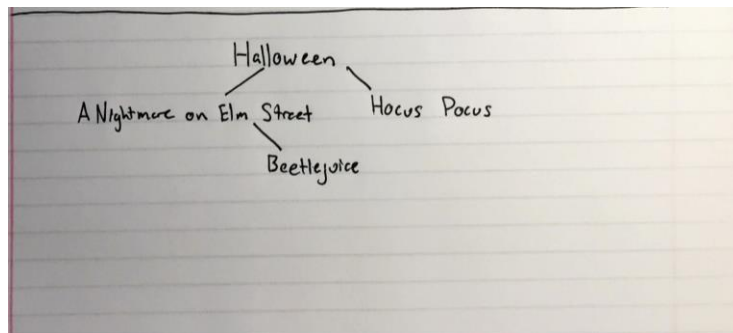 Halloween
A Nightmare on Elm Street Hocus Pocus
Beetlejuice